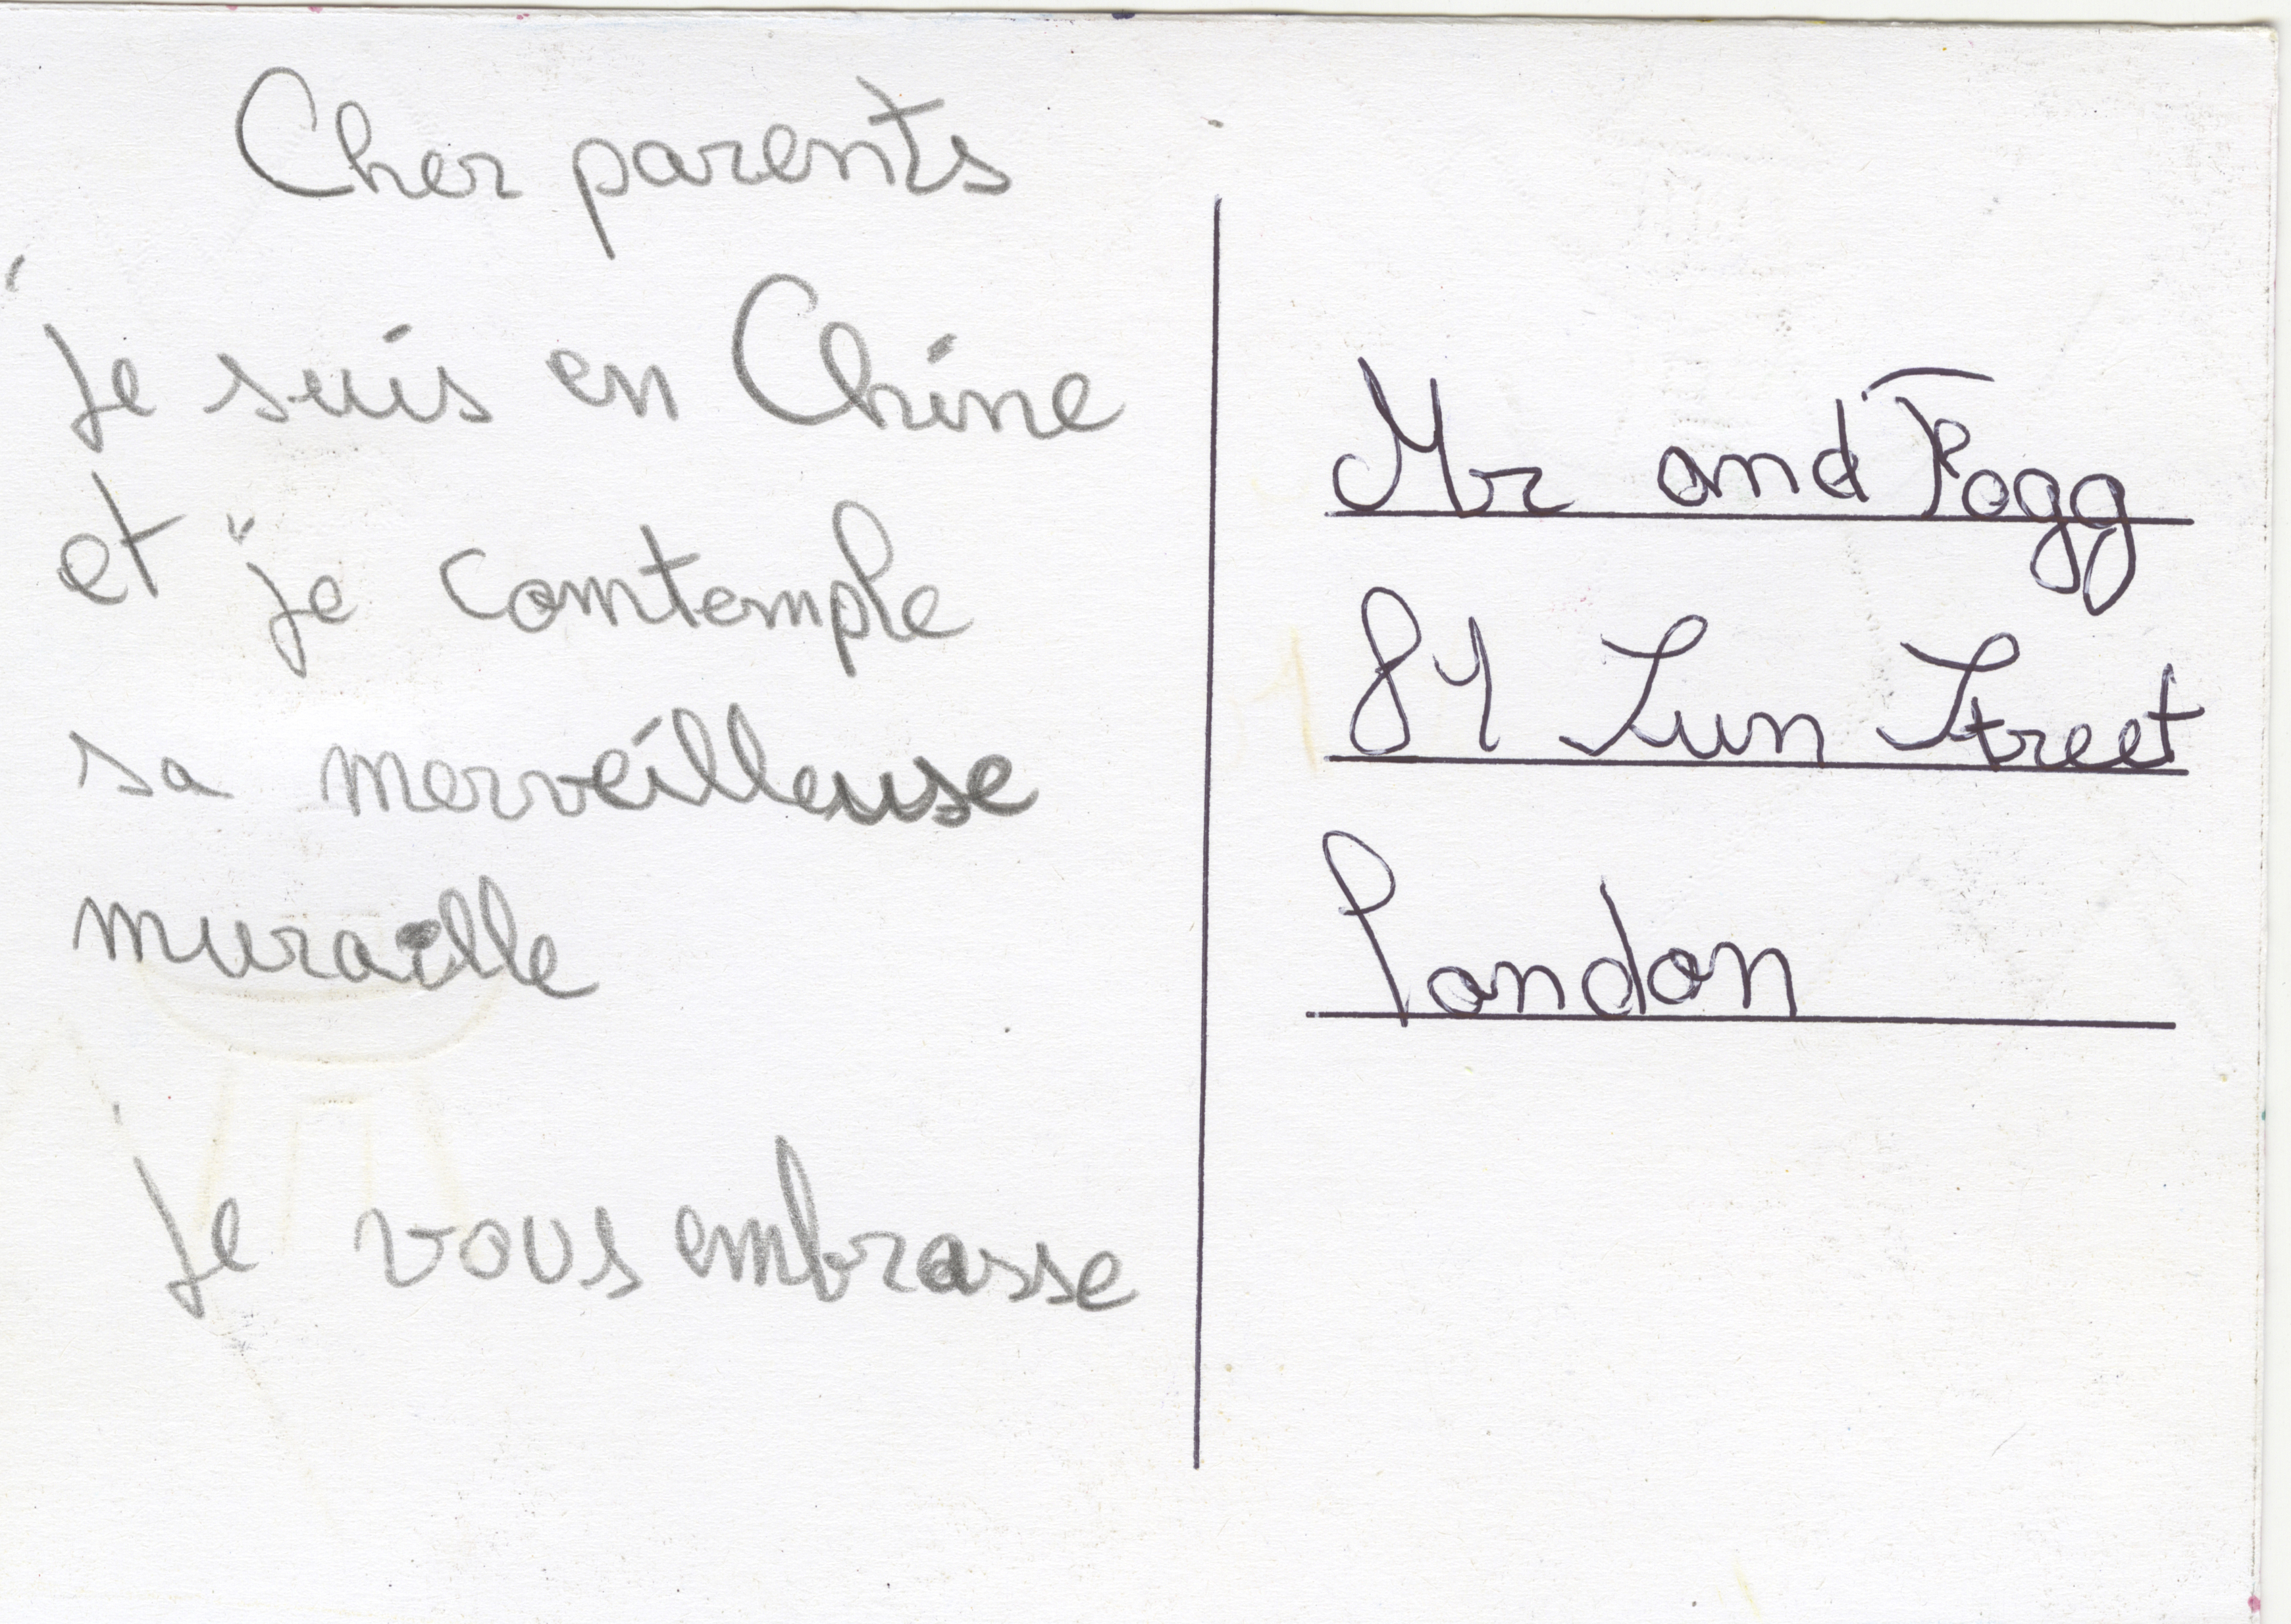 Cher parents
je suis en Chine
et je comtemple
sa merveilleuse
muraille
je vous embrasse
Mr and Fogg
84 Sun Street
London